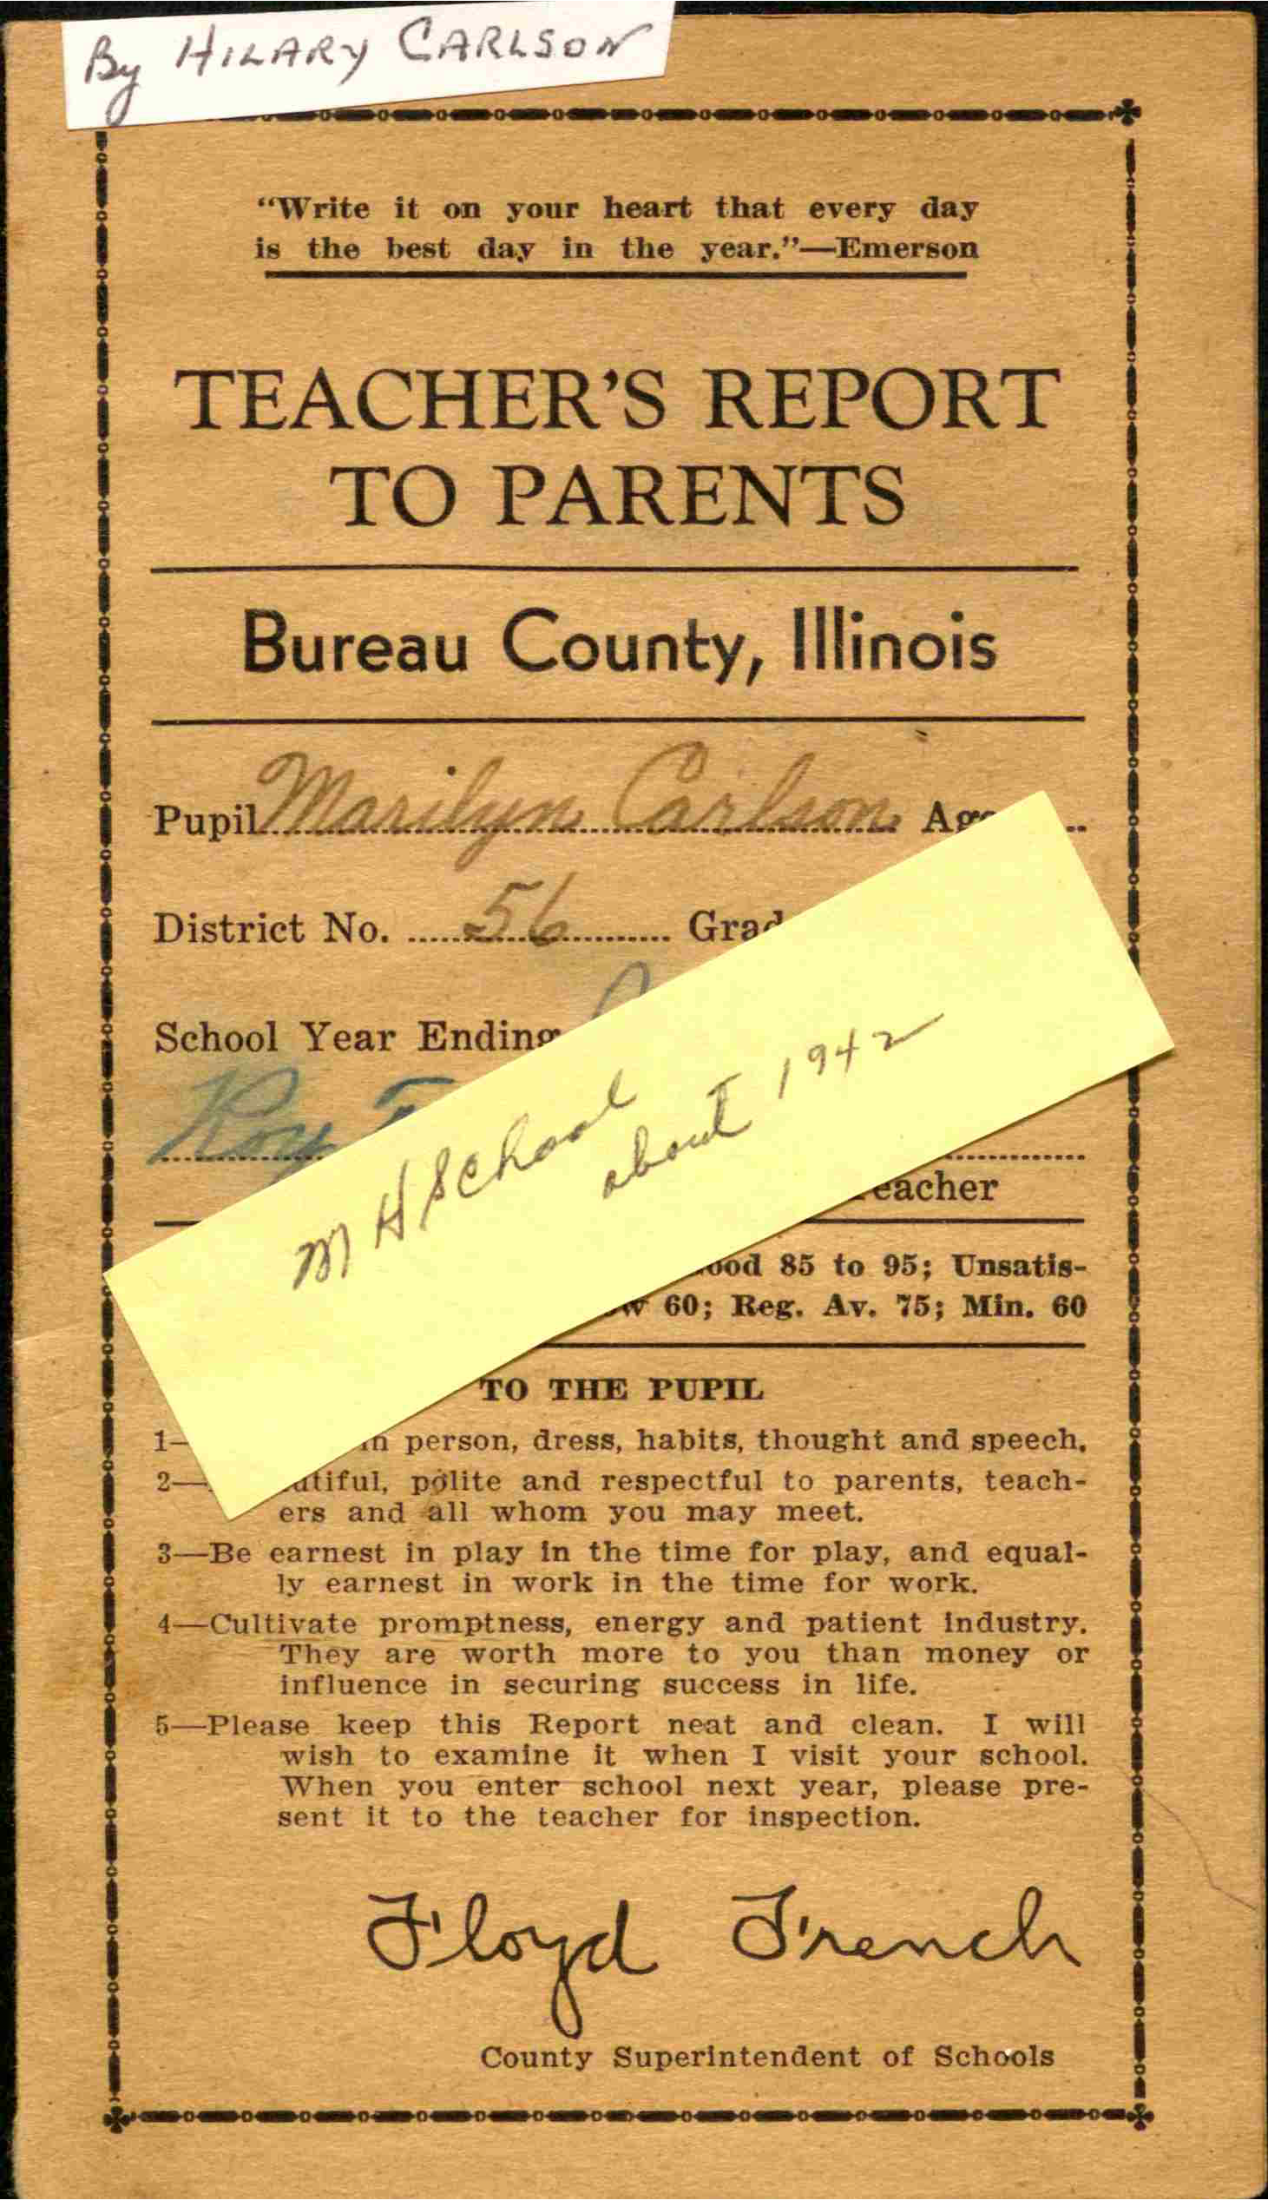 By HILARY CARLSON
“Write it on your heart that every day
is the best day in the year.”—Emerson
TEACHER'S REPORT
TO PARENTS
Bureau County, Illinois
Pupil Marilyn Carlson
District No. 56
School Year Ending
Roy
M H School
about 1942
85 to 95; Unsatis-
60; Reg. Av. 75; Min. 60
TO THE PUPIL
1— person, dress, habits, thought and speech.
2— polite and respectful to parents, teach-
ers and all whom you may meet.
3—Be earnest in play in the time for play, and equal-
ly earnest in work in the time for work.
4—Cultivate promptness, energy and patient industry.
They are worth more to you than money or
influence in securing success in life.
5—Please keep this Report neat and clean. I will
wish to examine it when I visit your school.
When you enter school next year, please pre-
sent it to the teacher for inspection.
Floyd French
County Superintendent of Schools